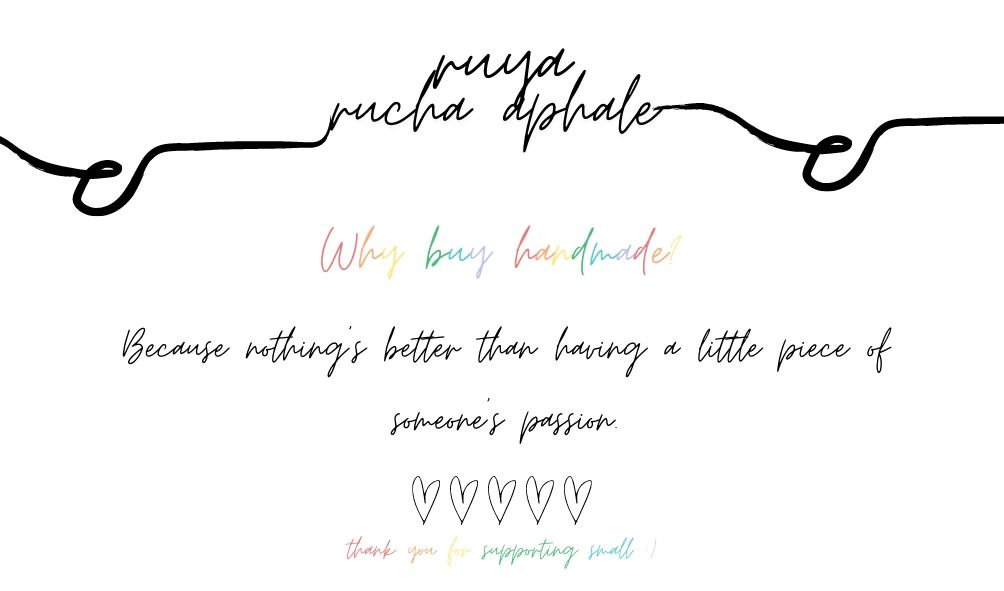 ruya
rucha aphale
Why buy handmade?
Because nothing's better than having a little piece of
someone's passion.
thank you for supporting small :)